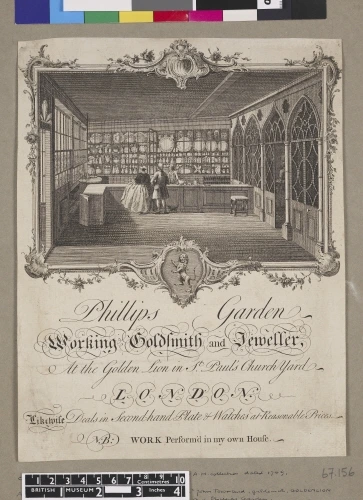 Phillips Garden
Working Goldsmith and Jeweller,
At the Golden Lion in St. Paul's Church Yard
LONDON.
Likewise Deals in Second hand Plate & Watches at Reasonable Prices
N.B. WORK Perform'd in my own House.
67.156
1 2 3 4 5 6 7 8 9 10
BRITISH MUSEUM Centimetres
1 2 3 4
Inches